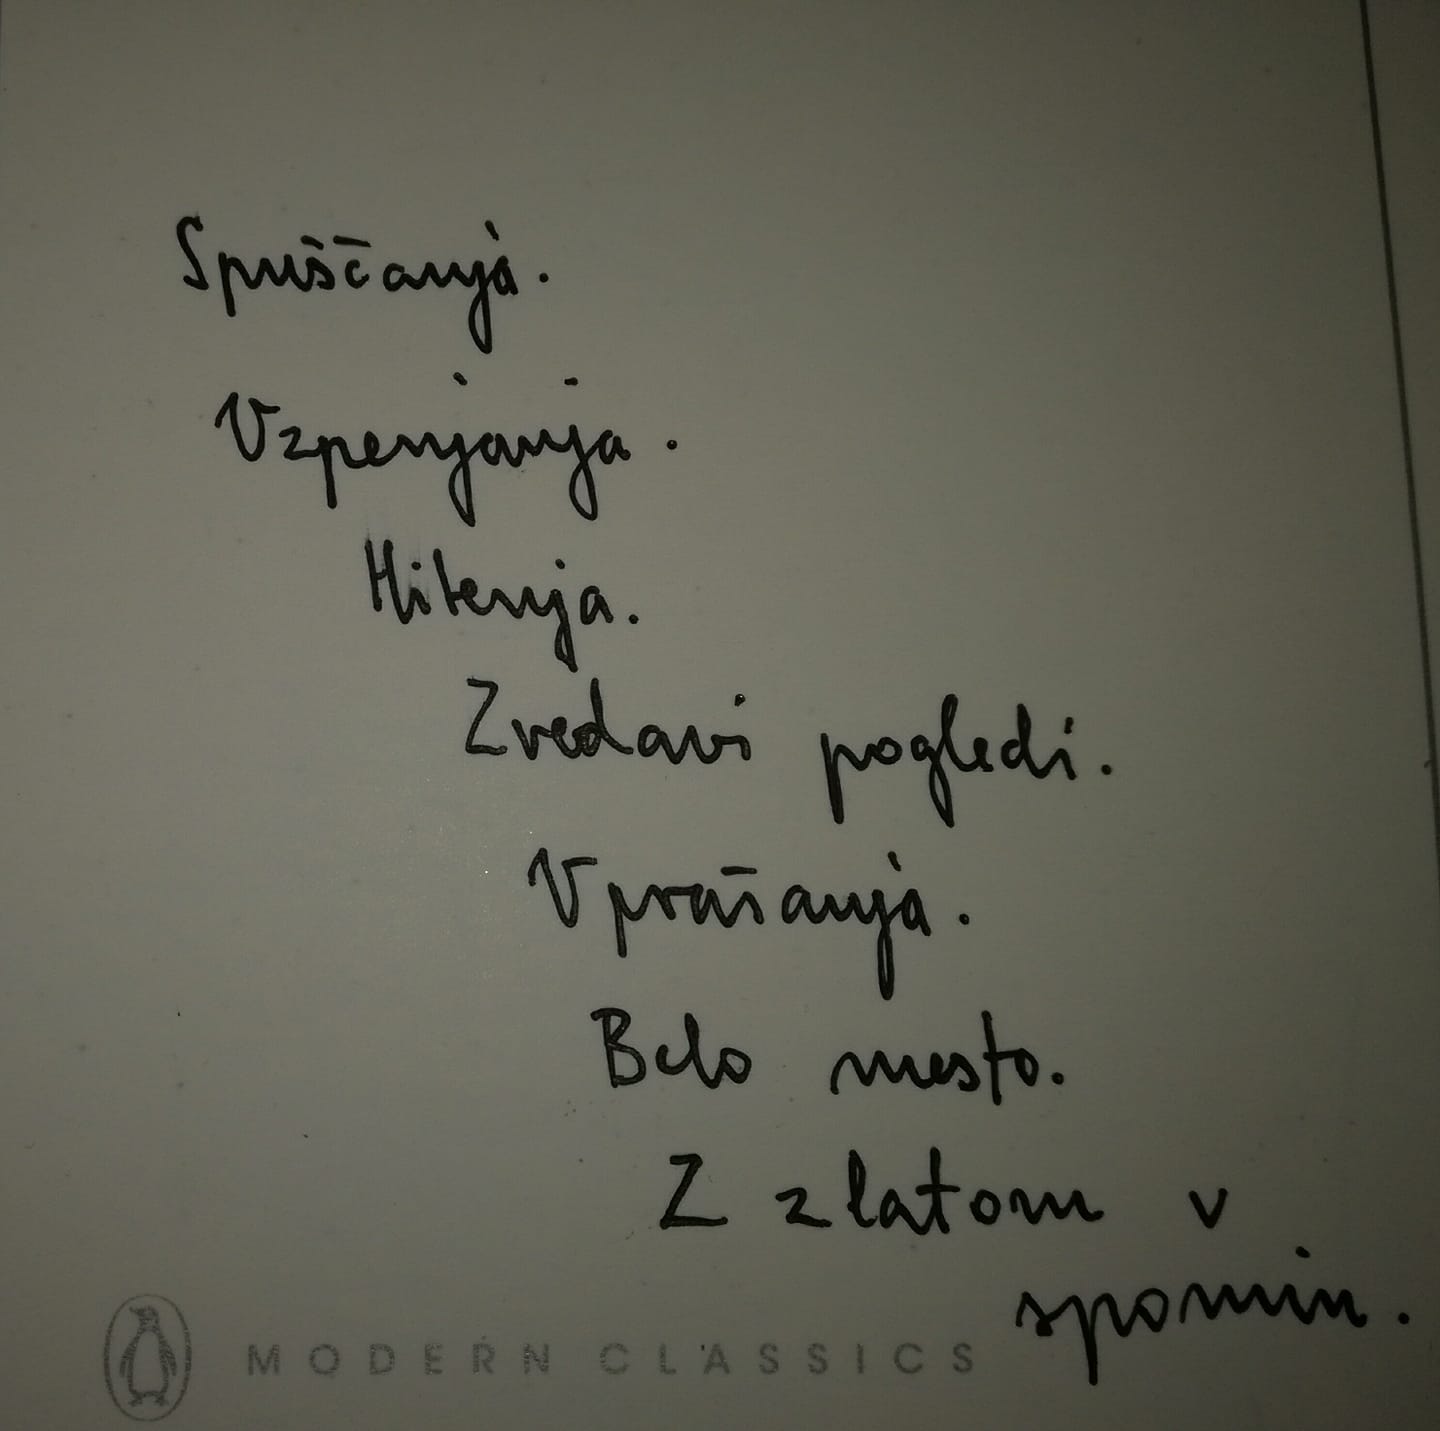 Spuščanja.
Vzpenjanja.
Hitenja.
Zvedavi pogledi.
Vprašanja.
Belo mesto.
Z zlatom v
spomin.
MODERN CLASSICS